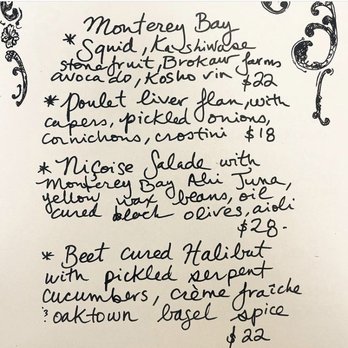 Monterey Bay
* Squid, Kashiwase
stonefruit, Brokaw farms
avocado, Kosho vin $22
* Poulet liver flan, with
capers, pickled onions,
cornichons, crostini $18
* Niçoise Salade with
Monterey Bay Ahi Tuna,
yellow wax beans, oil
cured black olives, aioli
$28-
* Beet cured Halibut
with pickled serpent
cucumbers, crème fraîche
& oaktown bagel spice
$22